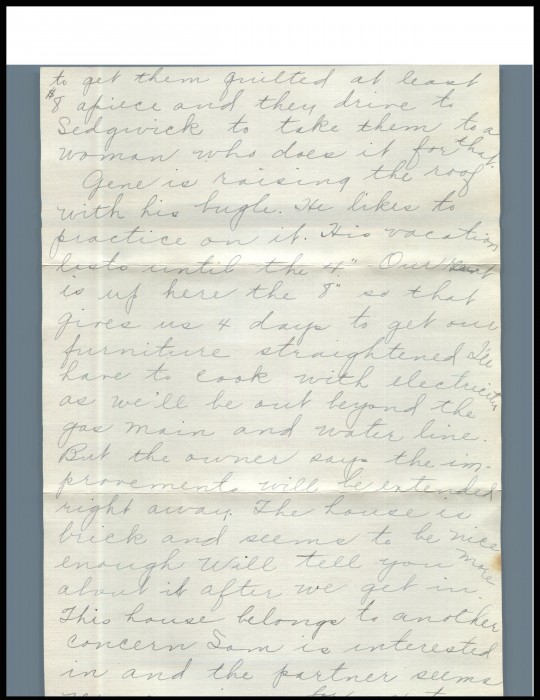 to get them quilted at least
$8 apiece and they drive to
Sedgwick to take them to a
woman who does it for that.
Gene is raising the roof
with his bugle. He likes to
practice on it. His vacation
lasts until the 4." Our rent
is up here the 8" so that
gives us 4 days to get our
furniture straightened I'll
have to cook with electricity
as we'll be out beyond the
gas main and water line.
But the owner says the im-
provements will be extended
right away. The house is
brick and seems to be nice
enough Will tell you more
about it after we get in.
This house belongs to another
concern Sam is interested
in and the partner seems